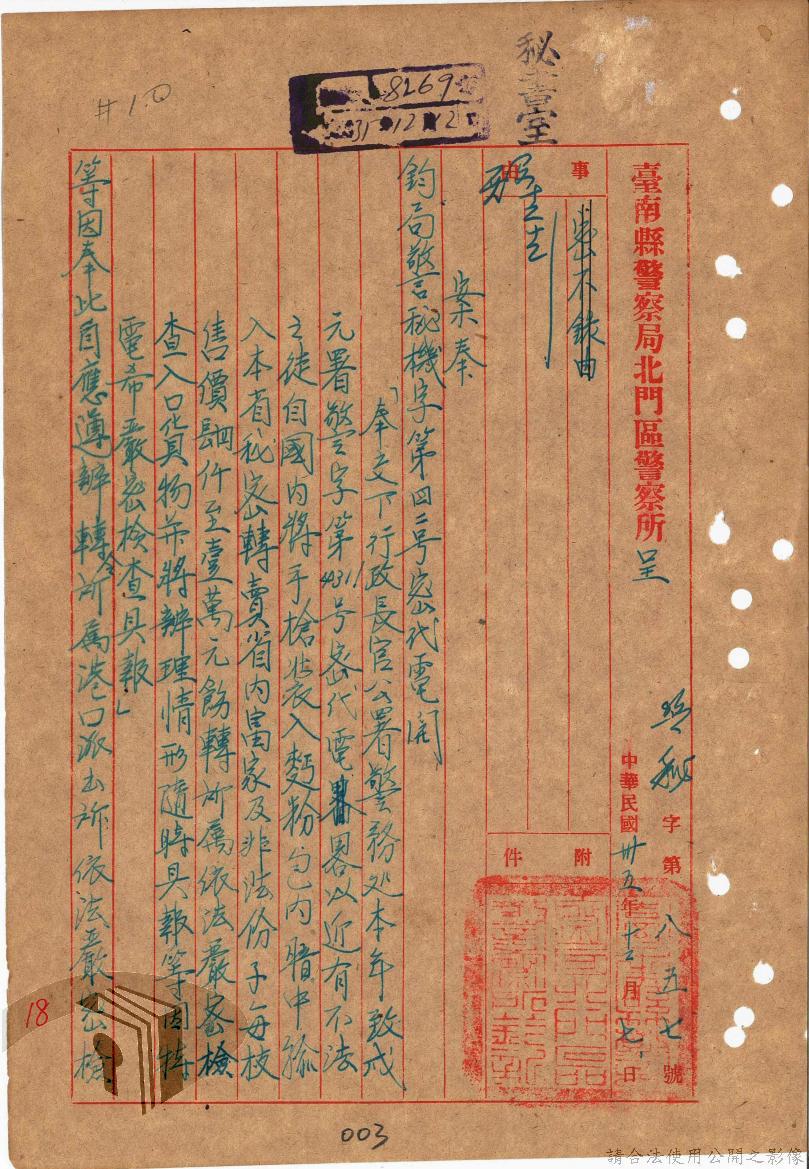 秘書室
8269
35 12 12
#1.0
臺南縣警察局北門區警察所呈
字第八五七號
中華民國卅五年十二月七日
事由
密不錄由
附件
案奉
鈞局警秘機字第四二号密代電開
「奉交下行政長官公署警務処本年致戌
元署警字第4311号密代電畧以近有不法
之徒自國内將手槍裝入麵粉包内暗中輸
入本省秘密轉賣省内富家及非法份子每枝
售價四仟至壹萬元飭轉所屬依法嚴密檢
查入口貨物并將辦理情形隨時具報等因特
電希嚴密檢查具報」
等因奉此自應遵辦轉令所屬港口派出所依法嚴密檢
18
003
請合法使用公開之影像